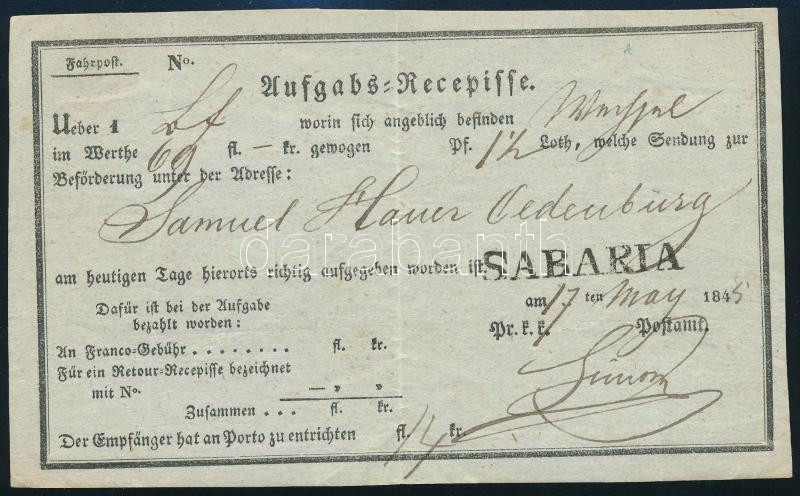 Fahrpost. No.
Aufgabs-Recepisse.
Ueber 1 worin sich angeblich befinden Wechsel
im Werthe 69 fl. — kr. gewogen Pf. 1½ Loth, welche Sendung zur
Beförderung unter der Adresse:
Samuel Hauer Oedenburg
darabanth
am heutigen Tage hierorts richtig aufgegeben worden ist. SABARIA
am 17 ten May 1845
Dafür ist bei der Aufgabe
bezahlt worden:
Pr. k. k. Postamt.
An Franco-Gebühr . . . . . . . . fl. kr.
Für ein Retour-Recepisse bezeichnet
mit No. — „ „
Zusammen . . . fl. kr.
Der Empfänger hat an Porto zu entrichten fl. 14 kr.